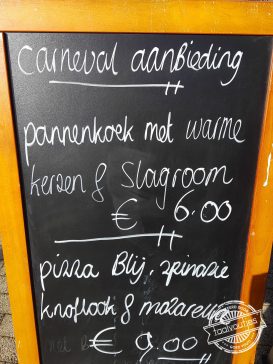 carneval aanBieding
pannenkoek met warme
kerzen & Slagroom
€ 6.00
pizza Blij, spinazie
knoflook & mozarella
€ 9.00
taalvoutjes